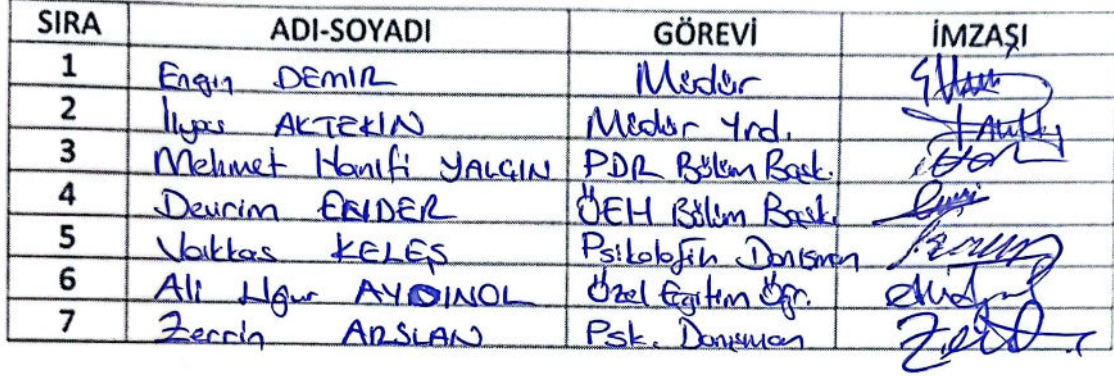 SIRA ADI-SOYADI GÖREVİ İMZAŞI
1 Engin DEMİR Müdür
2 İlyas AKTEKİN Müdür Yrd.
3 Mehmet Hanifi YALÇIN PDR Bölüm Başk.
4 Devrim ENDER ÖEH Bölüm Başk.
5 Vakkas KELEŞ Psikolojik Danışman
6 Ali Uğur AYDINOL Özel Eğitim Öğr.
7 Zerrin ARSLAN Psk. Danışman